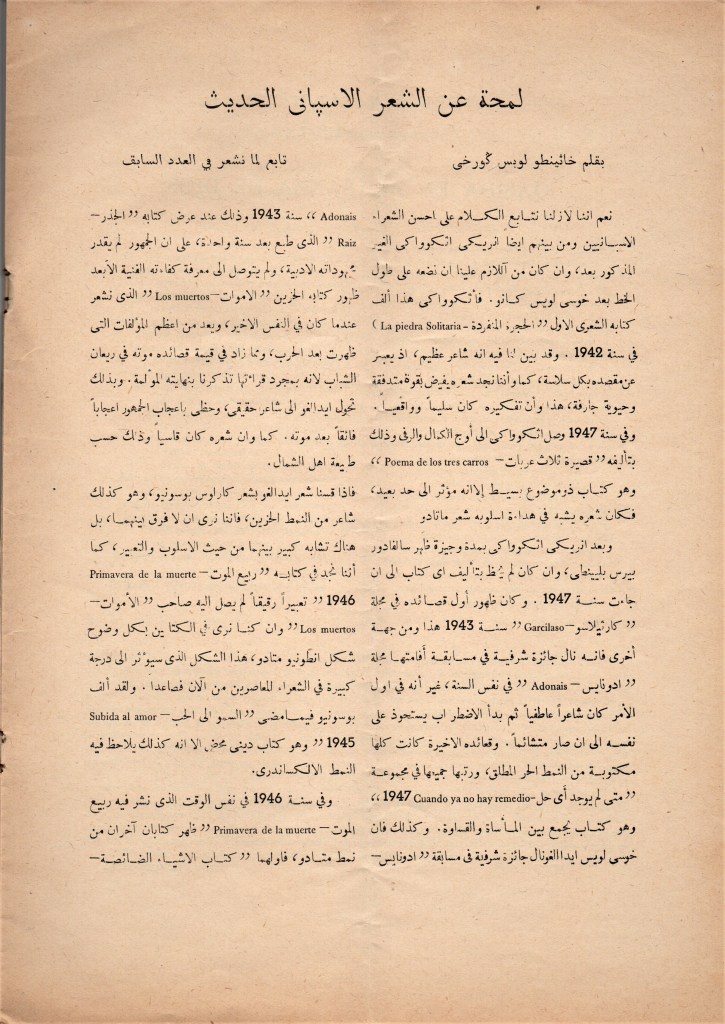 لمحة عن الشعر الاسپانى الحديث
بقلم خائينطو لوبس ڭورخى
تابع لما نشعر في العدد السابق
نعم اننا لازلنا نتابع الكلام على احسن الشعراء
الاسبانيين ومن بينهم ايضاً انريكى اثكوواكى الغير
المذكور بعد، وان كان من آللازم علينا ان نضعه على طول
الخط بعد خوسى لويس كانو. فأثكوواكى هذا ألف
كتابه الشعرى الاول ,, الحجرة المنفردة - La piedra Solitaria )
في سنة 1942 . وقد بين لنا فيه انه شاعر عظيم، اذ يعبر
عن مقصده بكل سلاسة، كما وأننا نجد شعره يفيض بقوة متدفقة
وحيوية جارفة، هذا وأن تفكيره كان سليماً وواقعياً.
وفي سنة 1947 وصل اثكوواكى الى أوج الكمال والرقى وذلك
بتأليفه ,, قصيرة ثلاث عربات — Poema de los tres carros ،،
وهو كتاب ذوموضوع بسيط إلاانه مؤثر الى حد بعيد،
فكان شعره يشبه في هداءة اسلوبه شعر ماتادو
وبعد انريكى اثكوواكى بمدة وجيزة ظهر سالفادور
بيرس بليينطى، وان كان لم يحظ بتأليف اى كتاب الى ان
جاءت سنة 1947 . وكان ظهور أول قصائده في مجلة
,, كارثيلاسو — Garcilaso ,, سنة 1943 هذا ومن جهة
أخرى فانه نال جائزة شرفية في مسابقة أقامتها مجلة
,, ادونايس — Adonais ,, في نفس السنة، غير أنه في اول
الأمر كان شاعراً عاطفياً ثم بدأ الاضطراب يستحوذ على
نفسه الى ان صار متشائماً . وقصائده الاخيرة كانت كلها
مكتوبة من النمط الحر المطلق، ورتبها جميعها في مجموعة
,, متى لم يوجد أى حل-Cuando ya no hay remedio 1947 ،،
وهو كتاب يجمع بين المأساة والقساوة. وكذلك فان
خوسى لويس ايداالغونال جائزة شرفية في مسابقة ,, ادونايس—
Adonais ،، سنة 1943 وذلك عند عرض كتابه ,, الجذر—
Raiz ,, الذى طبع بعد سنة واحدة، على ان الجمهور لم يقدر
مجهوداته الادبية، ولم يتوصل الى معرفة كفاءته الفنية الأبعد
ظهور كتابه الحزين ,, الاموات—Los muertos ,, الذى نشعر
عندما كان في النفس الاخير، وبعد من اعظم المؤلفات التى
ظهرت بعد الحرب، ومما زاد في قيمة قصائده موته في ريعان
الشباب لانه بمجرد قراءتها تذكرنا بنهايته المؤلمة. وبذلك
تحول ايدالغو الى شاعر حقيقى، وحظى باعجاب الجمهور اعجاباً
فائقاً بعد موته. كما وان شعره كان قاسياً وذلك حسب
طبيعة اهل الشمال.
فاذا قسنا شعر ايدالغو بشعر كارلوس بوسونيو، وهو كذلك
شاعر من النمط الحزين، فاننا نرى ان لا فرق بينهما، بل
هناك تشابه كبير بينهما من حيث الاسلوب والتعبير، كما
أننا نجد في كتابه ,, ربيع الموت — Primavera de la muerte
1946 ,, تعبيراً رقيقاً لم يصل اليه صاحب ,, الأموات —
Los muertos ,, وان كنا نرى في الكتابين بكل وضوح
شكل انطونيو متادو، هذا الشكل الذى سيؤثر الى درجة
كبيرة في الشعراء المعاصرين من آلآن فصاعدا. ولقد ألف
بوسونيو فيما مضى ,, السمو الى الحب — Subida al amor
1945 ,, وهو كتاب دينى محض الا انه كذلك يلاحظ فيه
النمط الالكساندرى.
وفي سنة 1946 في نفس الوقت الذى نشر فيه ربيع
الموت — Primavera de la muerte ,, ظهر كتابان آخران من
نمط متادو، فاولهما ,, كتاب الاشياء الضائعة—